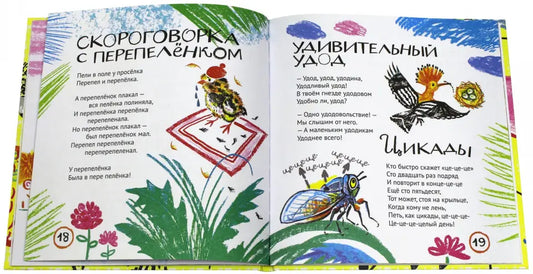 СКОРОГОВОРКА
С ПЕРЕПЕЛЁНКОМ
Пели в поле у просёлка
Перепел и перепёлка.
А перепелёнок плакал –
вся пелёнка полиняла,
И перепелёнка перепёлка
перепеленала.
Но перепелёнок плакал –
был перепелёнок мал.
Перепел перепелёнка
переперепеленал.
У перепелёнка
Была в пере пелёнка!
18
УДИВИТЕЛЬНЫЙ
УДОД
– Удод, удод, удодина,
Удодливый удод!
В твоём гнезде удодовом
Удобно ли, удод?
– Одно удодовольствие! –
Мы слышим от него.
– А маленьким удодикам
Удоднее всего!
ЦИКАДЫ
це-це-це
це-це-це
це-це-це
Кто быстро скажет «це-це-це»
Сто двадцать раз подряд
И повторит в конце-це-це
Ещё сто пятьдесят,
Тот может, стоя на крыльце,
Когда кому не лень,
Петь, как цикады, це-це-це,
Це-це-це-целый день!
19